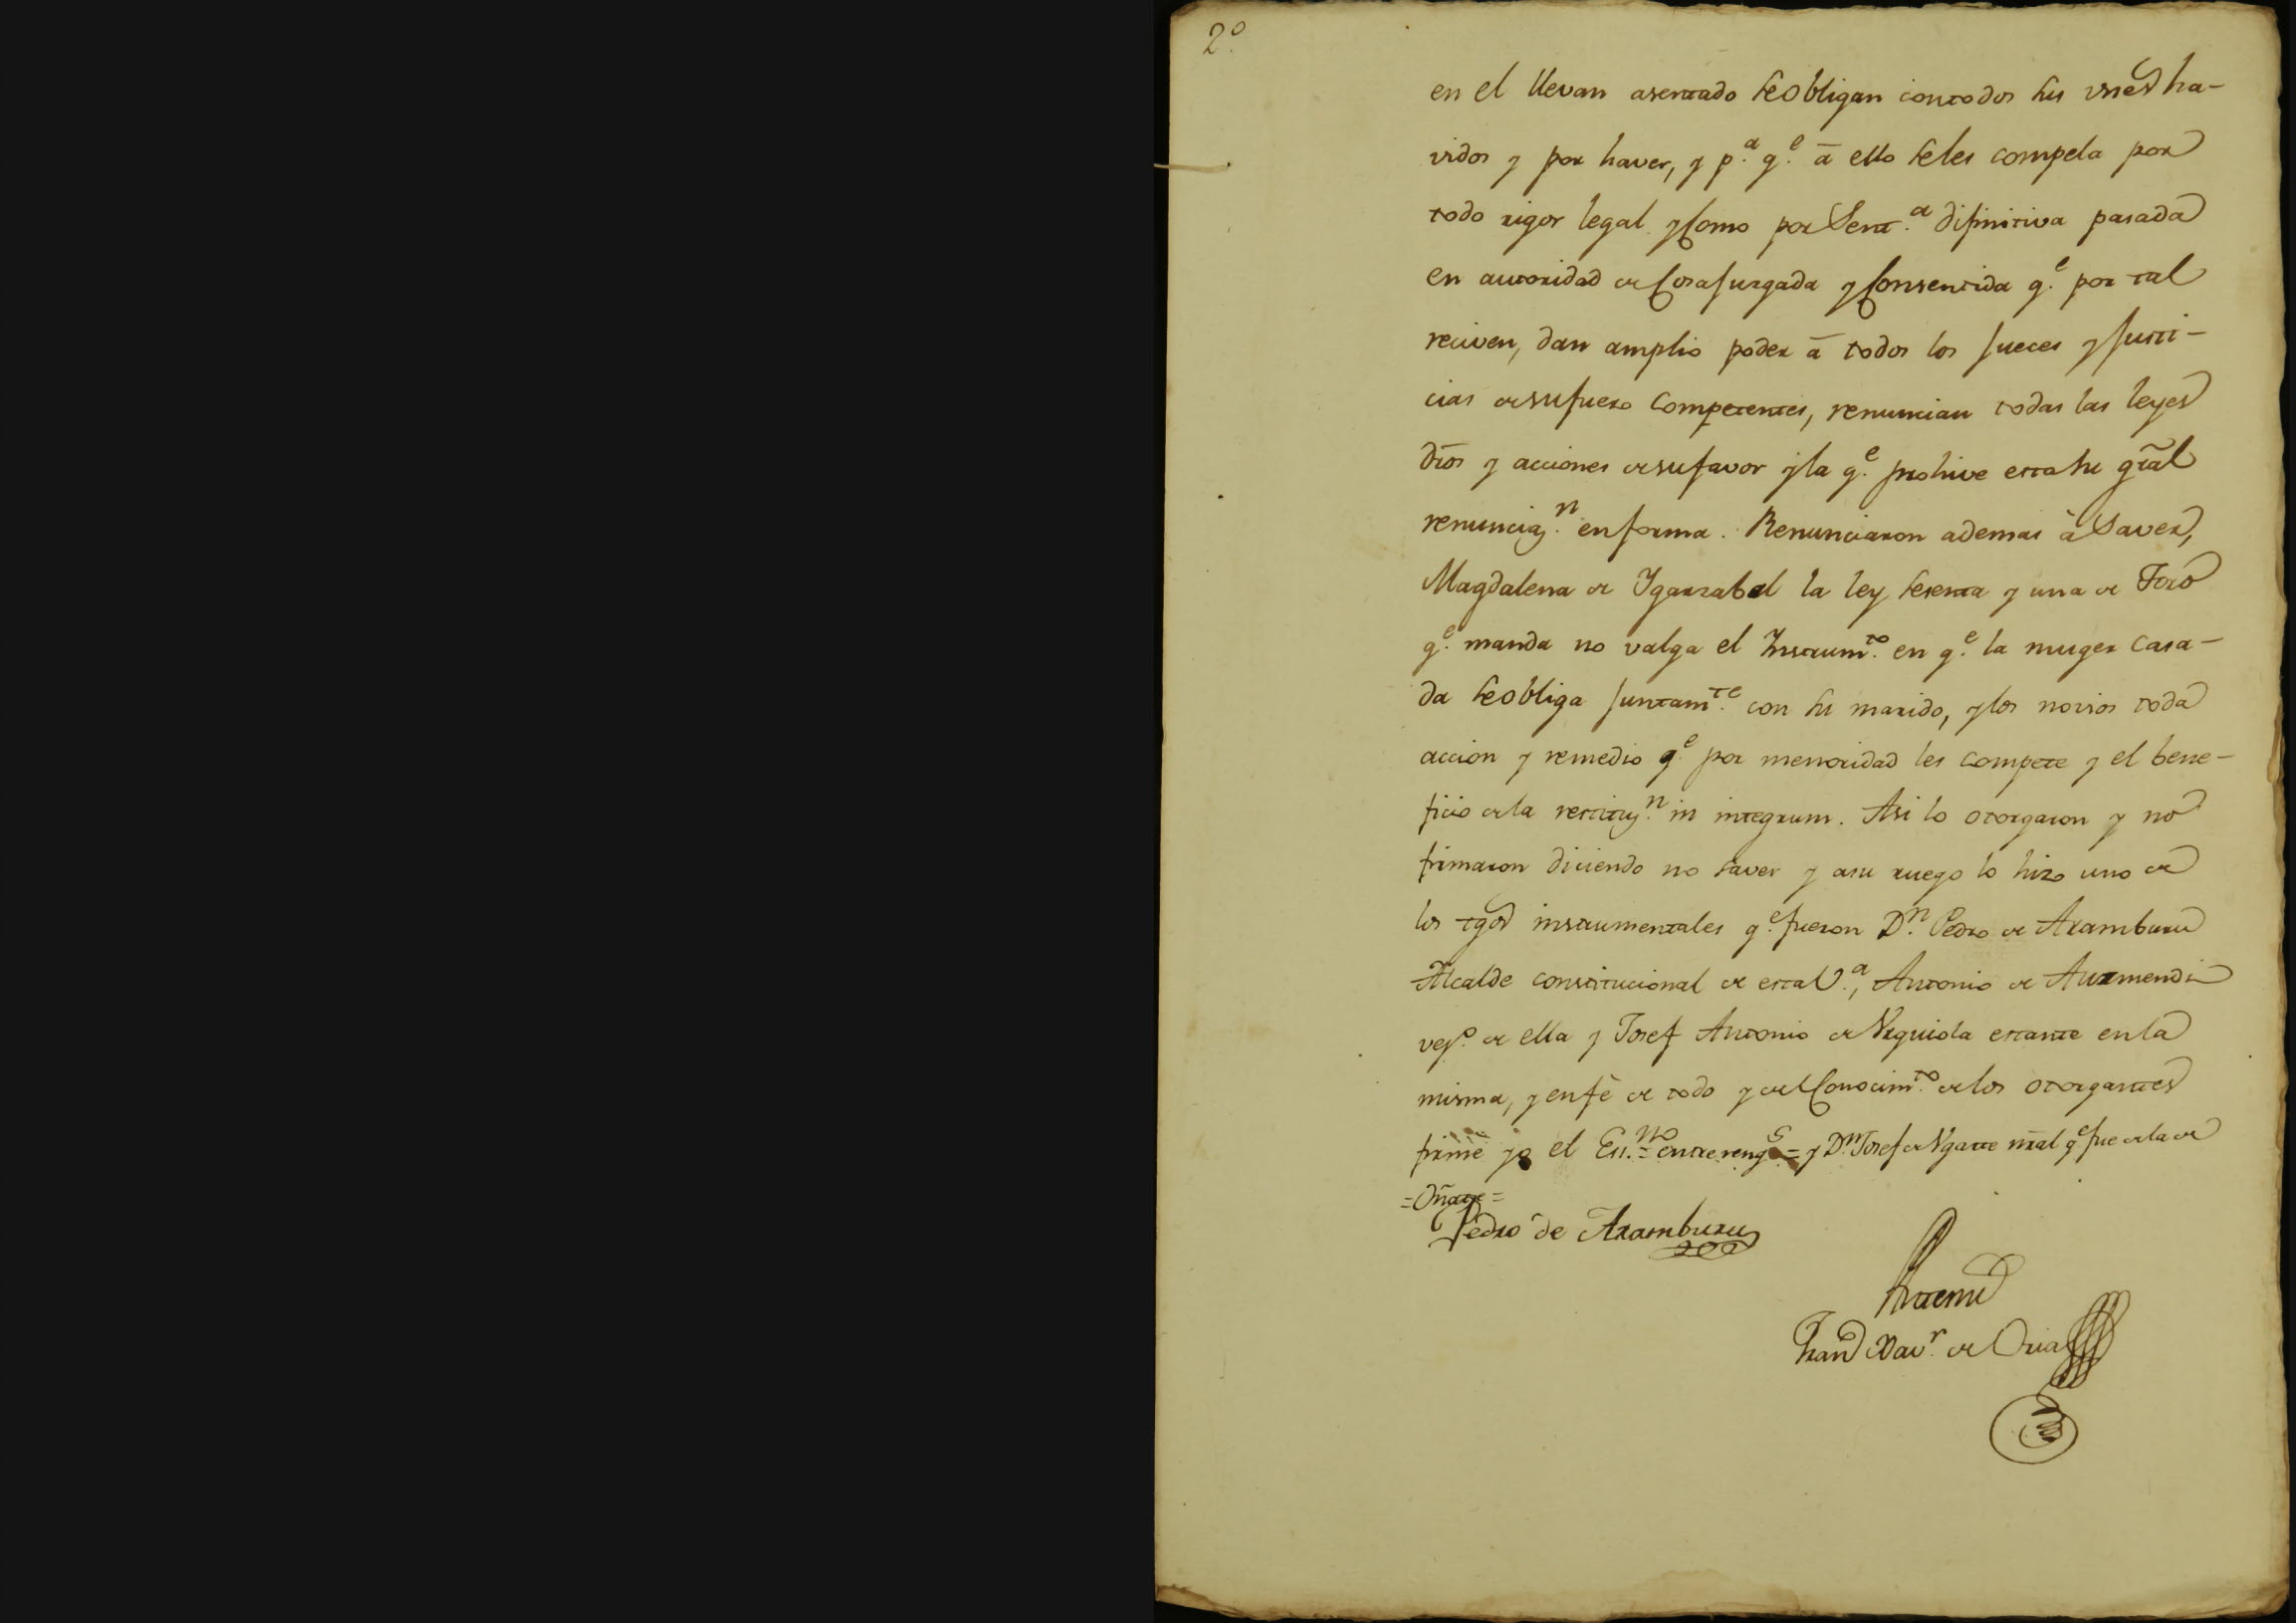 2º.
en el llevan asentado se obligan con todos sus vnes ha-
vidos y por haver, y p.ª q.e â ello se les compela por
todo rigor legal y como por Sent.ª difinitiva pasada
en autoridad de Cosa Jurgada y Consentida q.e por tal
reciven, dan amplio poder â todos los Jueces y Justi-
cias de su fuero Competentes, renuncian todas las leyes
dros y acciones de su favor y la q.e prohive esta su gral
renunciaz.n en forma. Renunciaron ademas â Saver,
Magdalena de Ygarzabal la ley sesenta y una de Toro
q.e manda no valga el Instrum.to en q.e la muger casa-
da se obliga Juntam.te con su marido, y los novios toda
accion y remedio q.e por menoridad les compete y el bene-
ficio de la restituz.n in integrum. Asi lo otorgaron y no
firmaron diciendo no saver y a su ruego lo hizo uno de
los tgos instrumentales q.e fueron D.n Pedro de Aramburu
Alcalde constitucional de esta V.ª, Antonio de Auzmendi
vez.º de ella y Josef Antonio de Urquiola estante en la
misma, y en fè de todo y del Conocim.to de los otorgantes
firmè yo el Es.no = entrereng.s = y D.n Josef de Ugarte nral q.e fue de la de
=Oñate=
Pedro de Aramburu
Antemi
Fran.co Xav.r de Oria